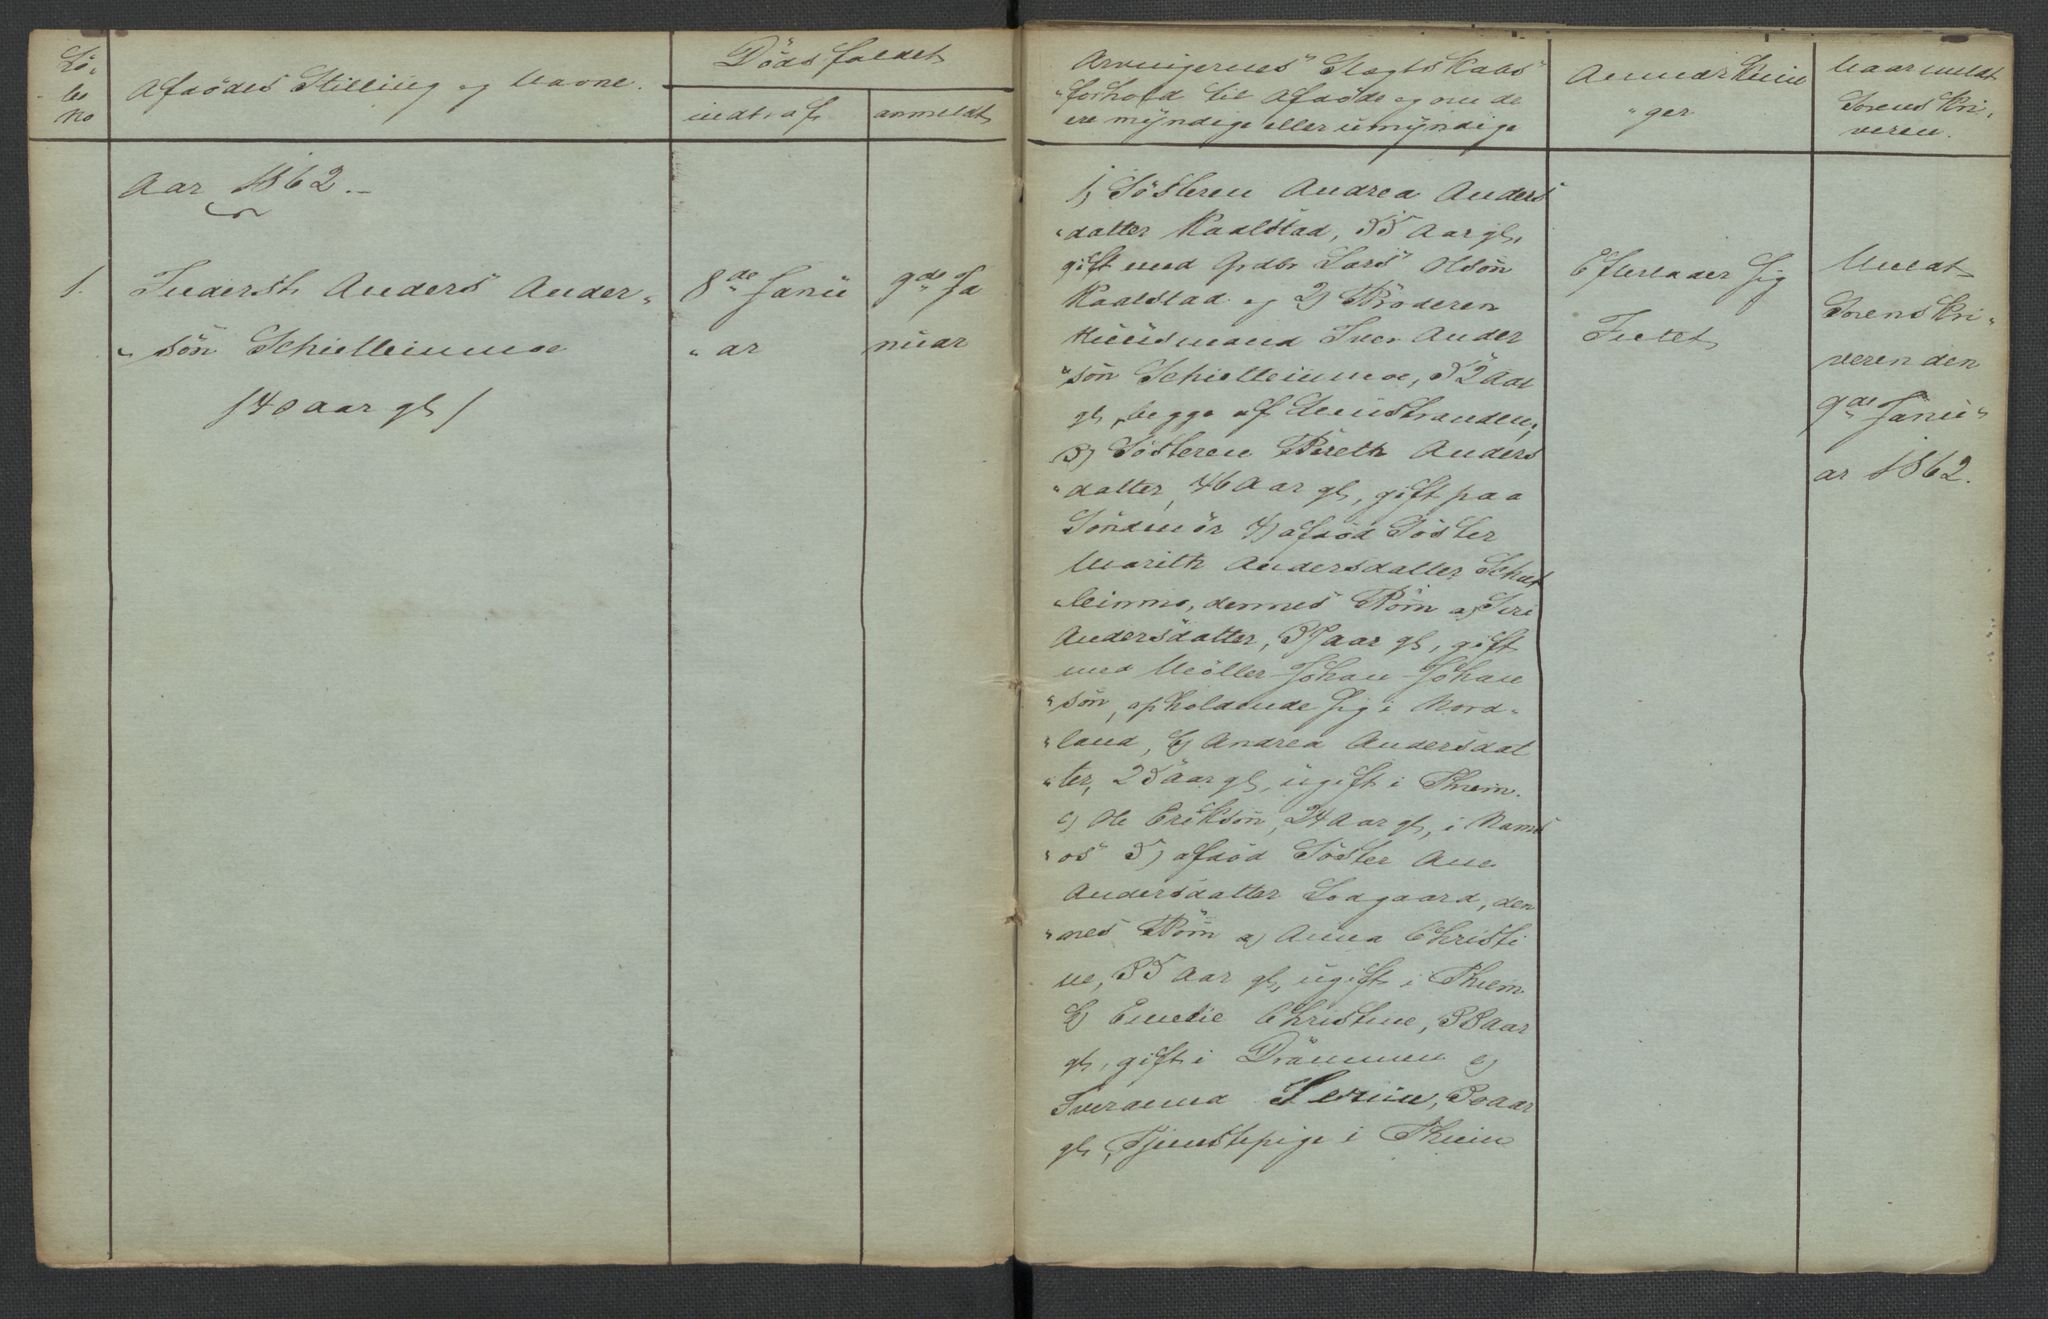 Lö-
be
No
Afdödes Stilling og Navne.
Dödsfaldet
indt. af
anmeldt
Arvingernes Slægtskabs
forhold til Afdöde og om de
ere myndige eller umyndige
Anmærknin
ger
Naar meldt
Sorenskri-
veren.
Aar 1862.
1.
Inderst Anders Ander-
sön Schielleinmoe
/40 aar gl/
8de Janu
ar
9de Ja
nuar
1) Södsteren Andrea Anders
datter Kaalstad, 55 Aar gl,
gift med Grdbr Lars Olsön
Kaalstad og 2) Broderen
Huusmand Iver Ander
sön Schielleinmoe, 52 Aar
gl, begge af
3) Sösteren Bereth Anders
datter, 46 Aar gl, gift paa
Söndmör 4) afdöd Söster
Marith Andersdatter Schiel
leinmo, dennes Börn a) Siri
Andersdatter, 35 aar gl, gift
med Möller Johan Johan
sön, opholdende sig i Nord-
land, b) Andrea Andersdat
ter, 25 aar gl, ugift i Thiem.
c) Ole Eriksön, 24 Aar gl, i Nams
os 5) afdöd Söster Ane
Andersdatter Sodgaard, den
nes Börn a) Anna Christi
ne, 35 Aar gl, ugift i Thiem
b) Emelie Christine, 33 Aar
gl, gift i Drammen c)
Iveranna Serine, 30 Aar
gl, Tjenstepige i Thiem
Efterlader sig
Intet
Meldt
Sorenskri-
veren den
9de Janu-
ar 1862.